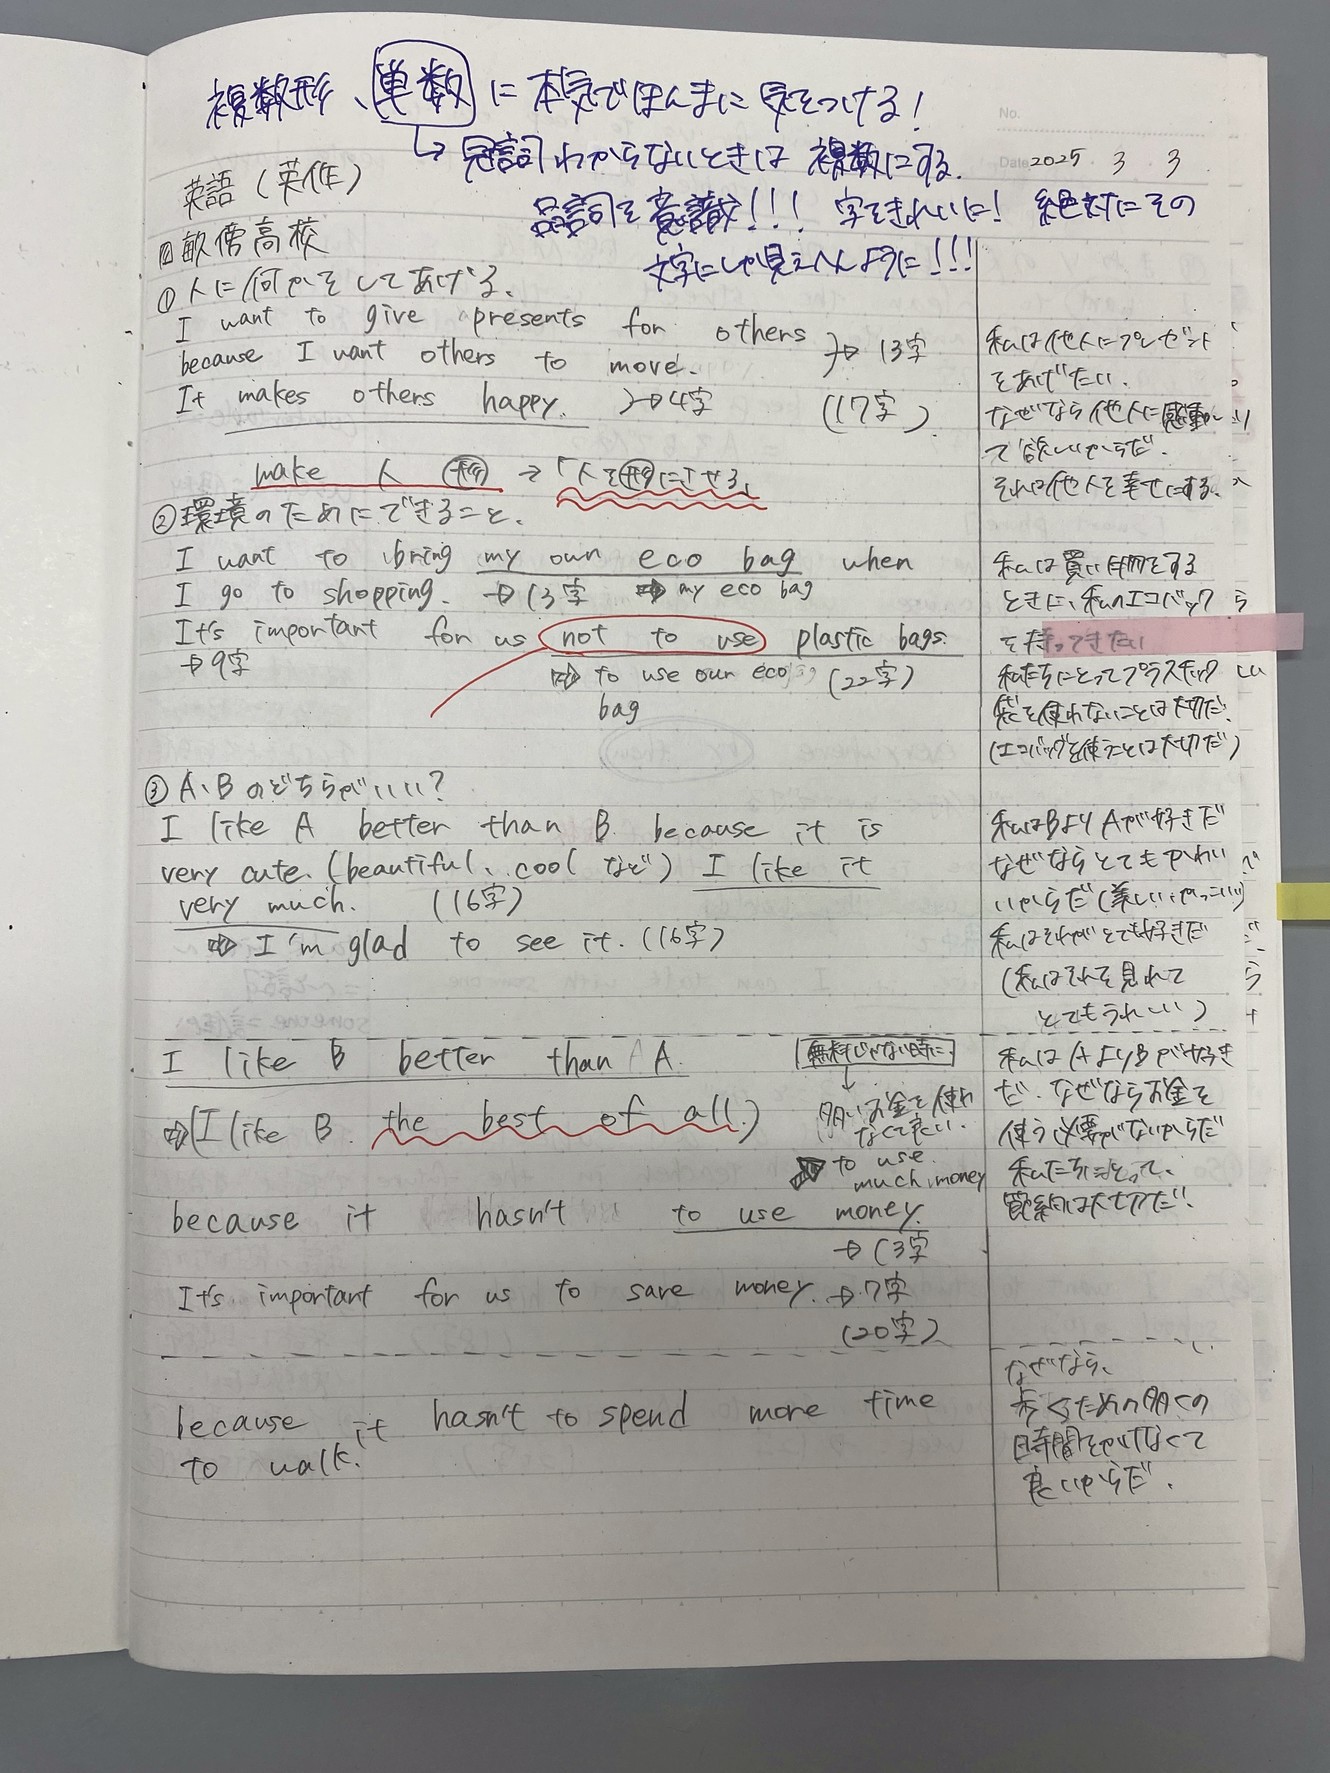 複数形、単数に本気でほんまに気をつける!
No.
↳冠詞わからないときは複数にする.
Date 2025 . 3 . 3
英語(英作)
品詞を意識!!! 字をきれいに! 絶対にその
文字にしか見えへんように!!!
畝傍高校
①人に何かをしてあげる、
I want to give presents for others
because I want others to move. }→13字
It makes others happy. }→4字 (17字)
私は他人にプレゼント
をあげたい.
なぜなら他人に感動し
て欲しいからだ.
それは他人を幸せにする.
make 人 形 →「人を形にさせる」
②環境のためにできること.
I want to bring my own eco bag when
I go to shopping. →13字 ⇒ my eco bag
It's important for us not to use plastic bags.
→9字
⇒ to use our eco (22字)
bag
私は買い物をする
ときに、私のエコバック
を持ってきたい
私たちにとってプラスチック
袋を使わないことは大切だ.
(エコバッグを使うことは大切だ)
③A、Bのどちらがいい?
I like A better than B because it is
very cute. (beautiful、cool など) I like it
very much. (16字)
⇒ I'm glad to see it. (16字)
私はBよりAが好きだ
なぜならとてもかわい
いからだ(美しい、かっこいい)
私はそれがとても好きだ
(私はそれを見れて
とてもうれしい)
I like B better than A.
無料じゃない時に
↓
⇒(I like B the best of all.)
多いお金を使わ
なくて良い.
⇒ to use
much money
because it hasn't to use money.
→13字
It's important for us to save money. →7字
(20字)
私はAよりBが好き
だ. なぜならお金を
使う必要がないからだ
私たちにとって、
節約は大切だ!
because it hasn't to spend more time
to walk.
なぜなら、
歩くための多くの
時間をかけなくて
良いからだ.